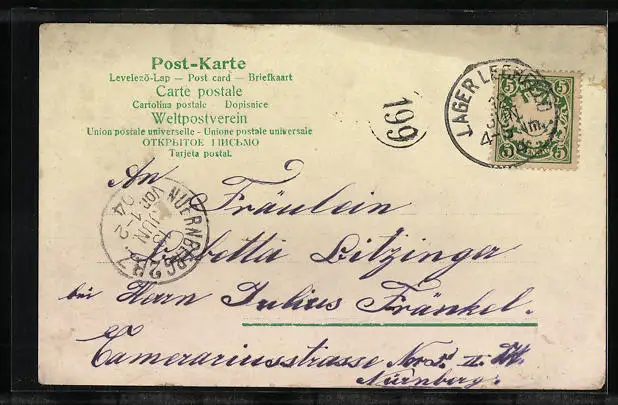 Post-Karte
Levelezö-Lap — Post card — Briefkaart
Carte postale
Cartolina postale - Dopisnice
Weltpostverein
Union postale universelle - Unione postale universale
ОТКРЫТОЕ ПИСЬМО
Tarjeta postal.
199
LAGER
JUN
4-5
5 5
5 5
NUERNBERG 2
VOR. 1-2
JUN
04
An Fräulein
Babetta Litzinger
bei Herrn Julius Fränkel.
Camerariusstrasse II.
Nürnberg.